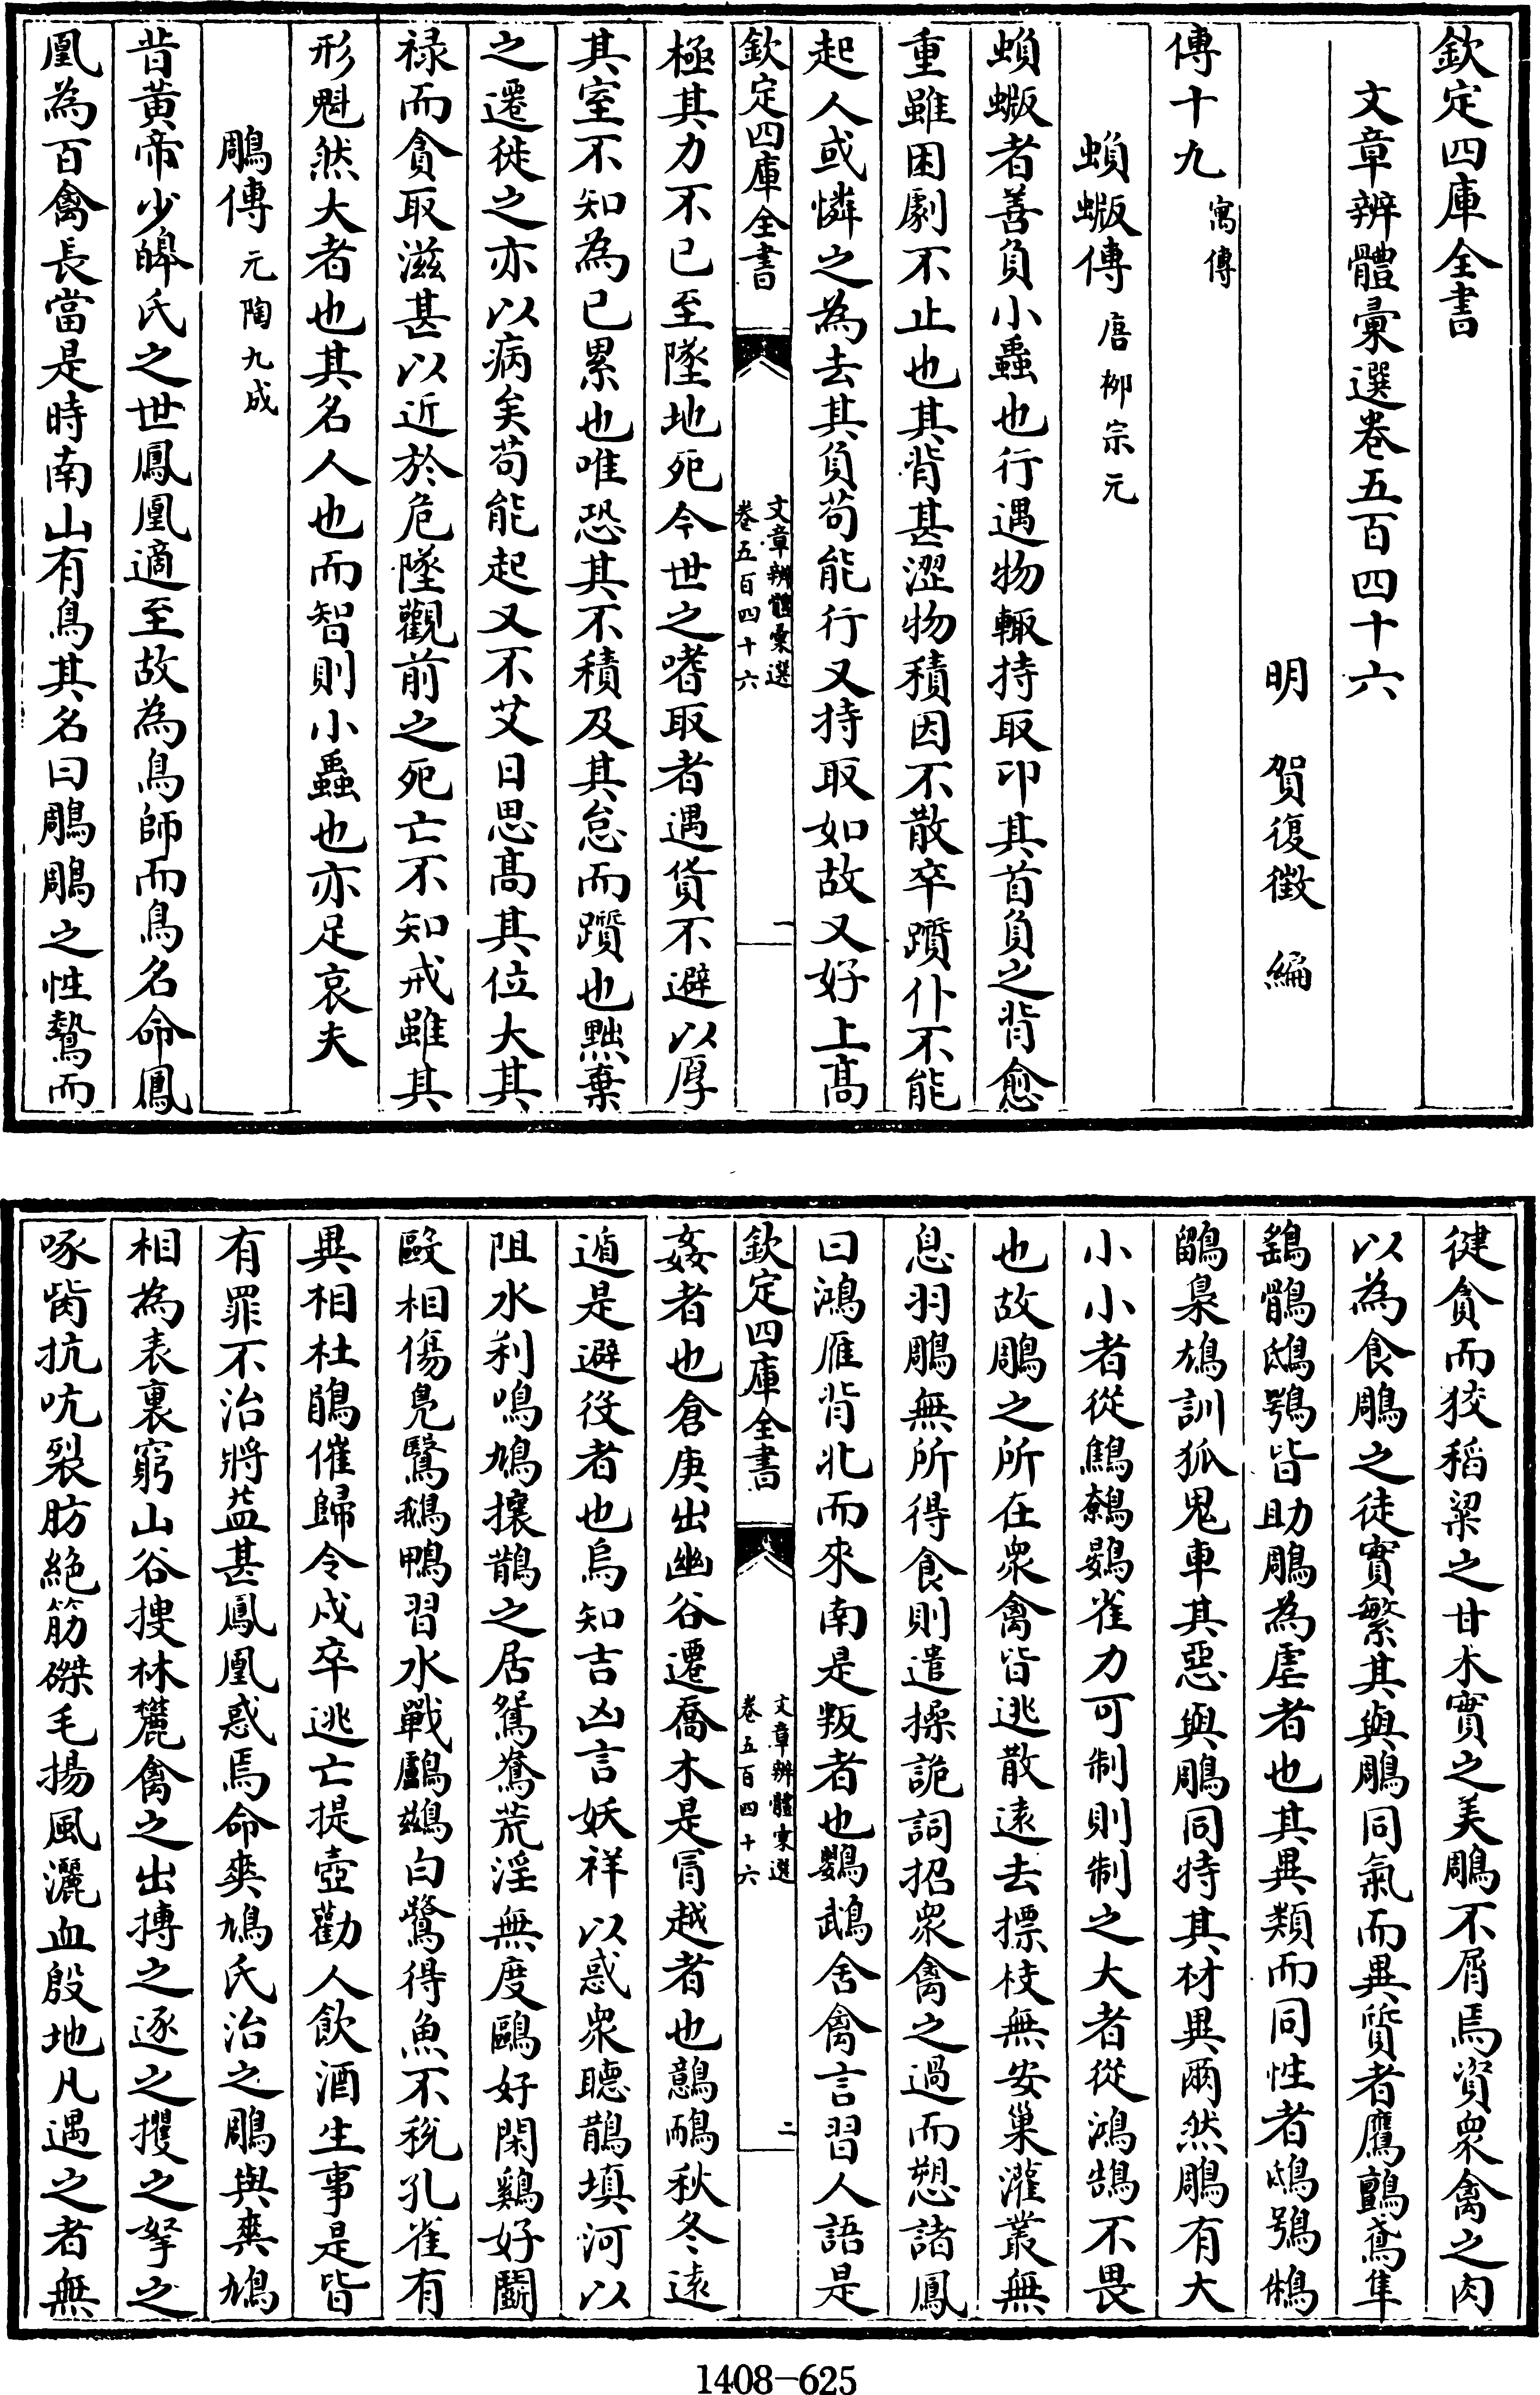 欽定四庫全書
文章辨體彙選卷五百四十六
明　賀復徵　編
傳十九寓傳
蝜蝂傳唐柳宗元
蝜蝂者善負小蟲也行遇物輙持取卬其首負之背愈
重雖困劇不止也其背甚澀物積因不散卒躓仆不能
起人或憐之為去其負茍能行又持取如故又好上髙
欽定四庫全書
文章辨體彙選
卷五百四十六
一
極其力不已至墜地死今世之嗜取者遇貨不避以厚
其室不知為已累也唯恐其不積及其怠而躓也黜棄
之遷徙之亦以病矣茍能起又不艾日思髙其位大其
禄而貪取滋甚以近於危墜觀前之死亡不知戒雖其
形魁然大者也其名人也而智則小蟲也亦足哀夫
鵰傳元陶九成
昔黄帝少皥氏之世鳳凰適至故為鳥師而鳥名命鳳
凰為百禽長當是時南山有鳥其名曰鵰鵰之性鷙而
健貪而狡稻粱之甘木實之美鵰不屑焉資衆禽之肉
以為食鵰之徒實繁其與鵰同氣而異質者鷹鸇鳶隼
鷂鶻鴟鶚皆助鵰為虐者也其異類而同性者鴟鴞鵂
鶹梟鴆訓狐鬼車其惡與鵰同特其材異爾然鵰有大
小小者從鷦鷯鷃雀力可制則制之大者從鴻鵠不畏
也故鵰之所在衆禽皆逃散逺去摽枝無安巢灌叢無
息羽鵰無所得食則遣操詭詞招衆禽之過而愬諸鳳
曰鴻雁背北而來南是叛者也鸚鵡舍禽言習人語是
欽定四庫全書
文章辨體彙選
卷五百四十六
二
姦者也倉庚出幽谷遷喬木是冐越者也鷾鴯秋冬逺
遁是避役者也烏知吉凶言妖祥以惑衆聽鵲填河以
阻水利鳴鳩攘鵲之居鴛鴦荒淫無度鷗好閑鷄好鬭
毆相傷鳧鷖鵝鴨習水戰鸕鷀白鷺得魚不稅孔雀有
異相杜鵑催歸令戍卒逃亡提壺勸人飲酒生事是皆
有罪不治將益甚鳳凰惑焉命爽鳩氏治之鵰與爽鳩
相為表裏窮山谷搜林麓禽之出摶之逐之攫之拏之
啄觜抗吭裂肪絶筋磔毛揚風灑血殷地凡遇之者無
1408-625